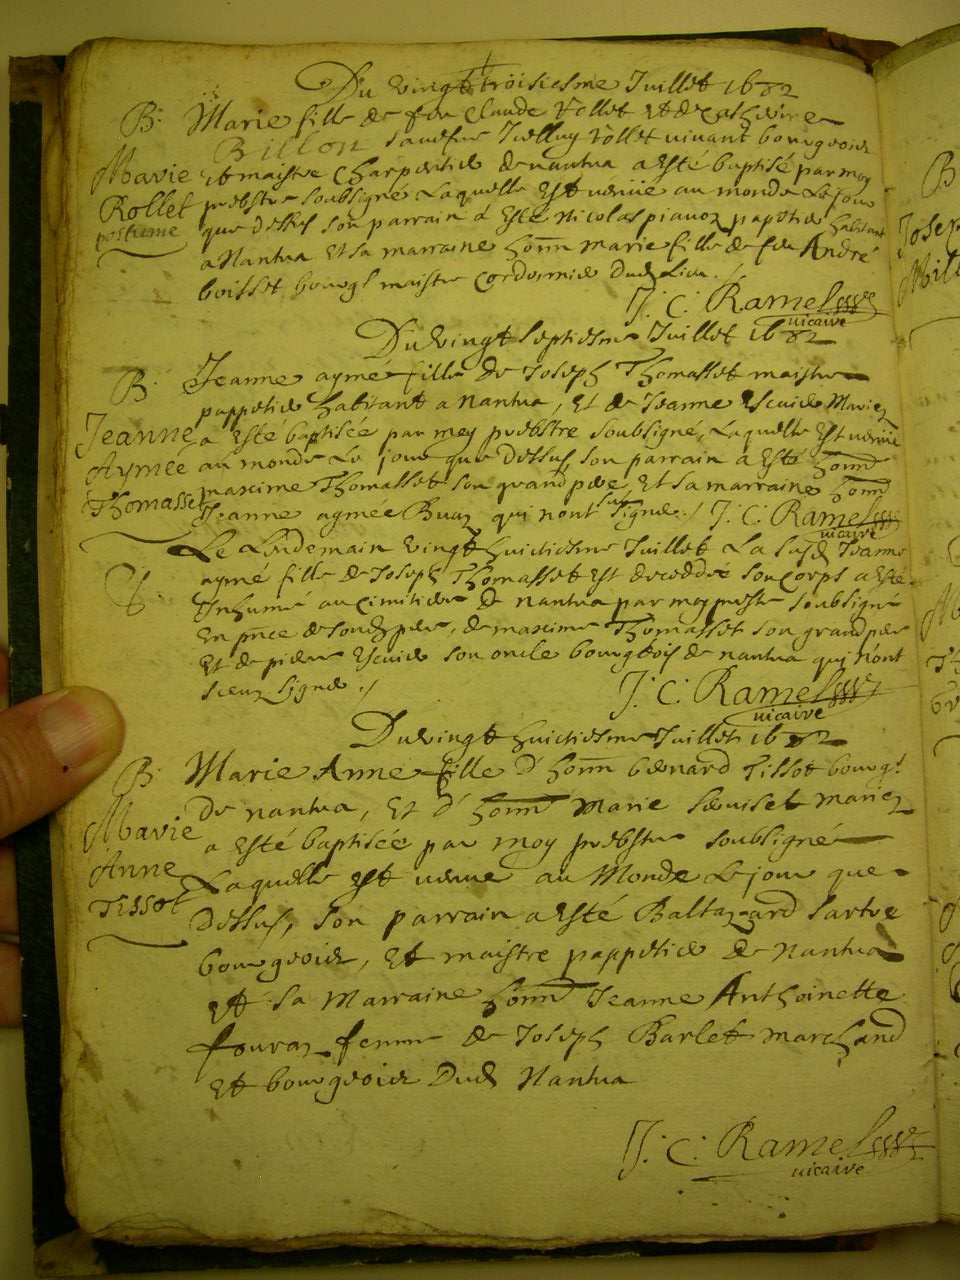 Du vingt troisiesme Juillet 1682
B. Marie fille de feu Claude Rollet et de Catherine
Billon sa vefve Rollet vivant bourgeois
Marie et maistre Charpentie de nantua a esté baptisé par moy
Rollet prebstre soubsigné Laquelle est venüe au monde Le jour
postume que dessus son parrain a esté Nicolas papetie habitant
a Nantua et sa marraine honn marie fille de feu André
boisset bourgs maistre Cordonnie dud Lieu ./
J. C. Ramel
vicaire
Du vingt septiesme Juillet 1682
B. Jeanne ayme fille de Joseph Thomasset maistre
pappetie habitant a nantua, et de Jeanne Escuie Mariez
Jeanne a esté baptisée par moy prebstre soubsigné, Laquelle est venüe
Aymée au monde Le jour que dessus, son parrain a esté honn
Thomasset maxime Thomasset son grand pere et sa marraine honn
Jeanne aymée Buaz qui n'ont sceu signe ./ J. C. Ramel
vicaire
Le Lendemain vingt huictiesme Juillet La susd Jeanne
aymé fille de Joseph Thomasset est decedée son corps a esté
inhumé au Cimitiere de nantua par moy prestre soubsigné
en pnce de soud pere, de maxime Thomasset son grand pere
et de pierre Escuie son oncle bourgeois de nantua qui n'ont
sceuz signe ./
J. C. Ramel
vicaire
Du vingt huictiesme Juillet 1682
B. Marie Anne fille d'honn bernard Tissot bourgs
de nantua, et d'honn Marie mariez
Marie a esté baptisée par moy prebstre soubsigné
Anne Laquelle est venue au Monde Le jour que
Tissot dessus, son parrain a esté Baltazard sartre
bourgeois, et maistre pappetie de Nantua
et sa Marraine honn Jeanne Anthoinette
fouraz femme de Joseph Barlet marchand
et bourgeois dud Nantua
J. C. Ramel
vicaire